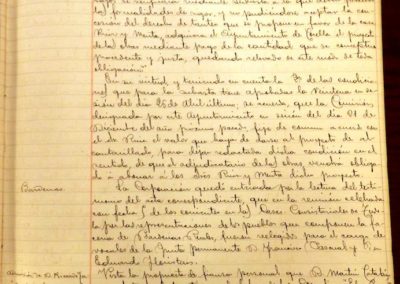 las formalidades de rigor, y no pudiendo aceptar la ce-
sión del derecho de tanteo que se propone en favor de la casa
Ruiz y Marta, adquiera el Ayuntamiento de Tudela el proyecto
de las obras mediante pago de la cantidad que se considere
procedente y justa, quedando relevado de este modo de toda
obligación".
En su virtud y teniendo en cuenta la de las condiciones
que para la subasta tiene aprobadas la Veintena en se-
sión del día 26 de Abril último, se acuerda, que la Comisión
designada por este Ayuntamiento en sesión del día 21 de
Diciembre del año próximo pasado, fije de común acuerdo con
el Sr. Ruiz el valor que haya de darse al proyecto de al-
cantarillado para dejar redactada dicha condición en el
sentido, de que el adjudicatario de las obras vendrá obliga-
do á abonar á los Sres Ruiz y Marta dicho proyecto.
Bardenas.
La Corporación quedó enterada por la lectura del testi-
monio del acta correspondiente, que en la reunión celebrada
con fecha 5 de los corrientes en las Casas Consistoriales de Tude-
la por las representaciones de los pueblos que componen la fa-
cería de Bardenas Reales, fueron reelegidos para el cargo de
vocales de la Junta Permanente D.
Eduardo
Vista la propuesta de personal que D. Martín